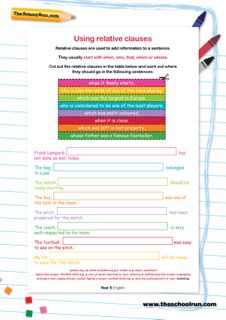 TheSchoolRun.com
Using relative clauses
Relative clauses are used to add information to a sentence.
They usually start with when, who, that, which or whose.
Cut out the relative clauses in the table below and work out where
they should go in the following sentences:
when it finally starts,
who is considered to be one of the best players
which was multi-coloured,
when it is clean,
which was left in lost property,
whose father was a famous footballer,
Frank Lampard, has
not done so well today.
The bag, belonged
to Luke.
The match, should be
really exciting.
The boy, was one of
the best in the team.
The pitch, had been
prepared for the match.
The coach, is very
well-respected by his team.
The football, was easy
to see on the pitch.
My kit, will be ready
to wear for the match.
Year 5 English
www.theschoolrun.com